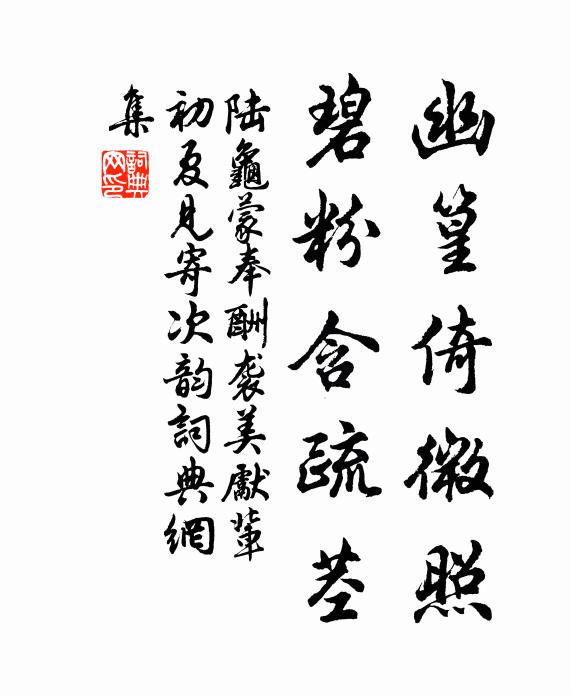 幽篁倚微照
碧粉含疏茎
陆龜蒙奉酬袭美獻輩
初夏見寄次韵詞典網
集
詞典网印